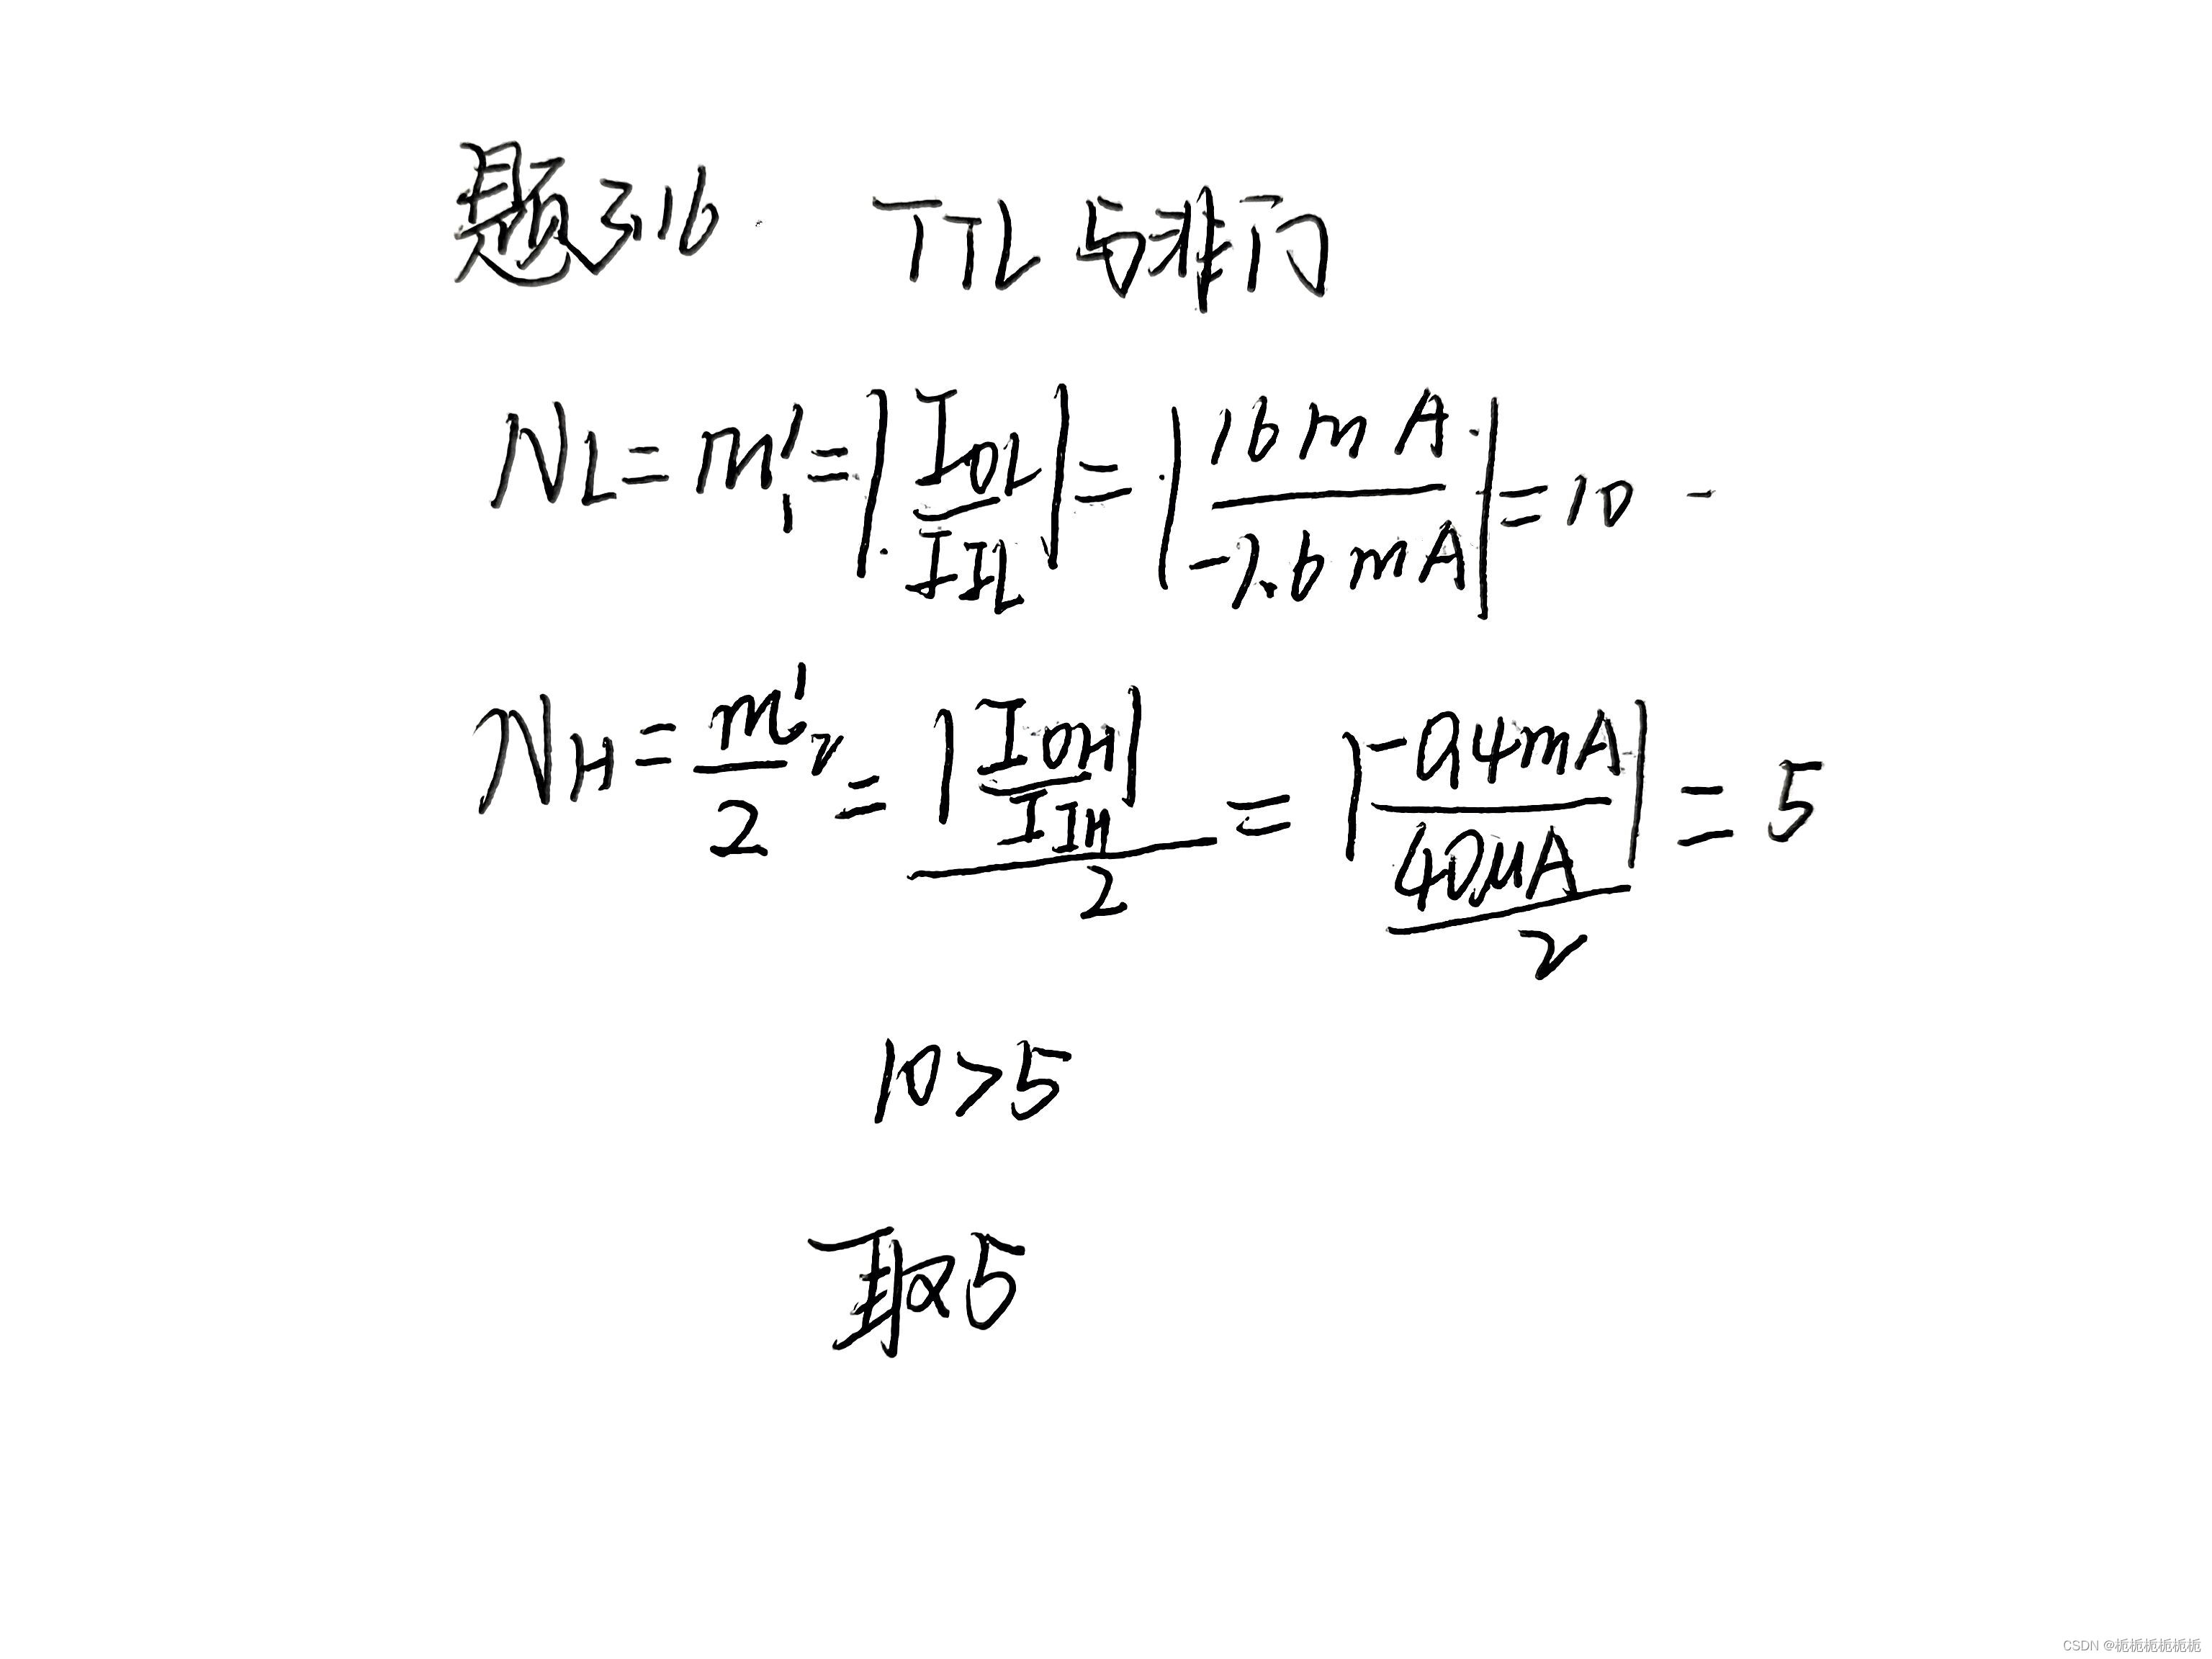 题3.16 TTL 与非门
NL = m'1 = |IOL/IIL| = |16mA/-1.6mA| = 10
NH = m'2/2 = |IOH/IIH|/2 = |-0.4mA/40μA|/2 = 5
10>5
取5
CSDN @栀栀栀栀栀栀